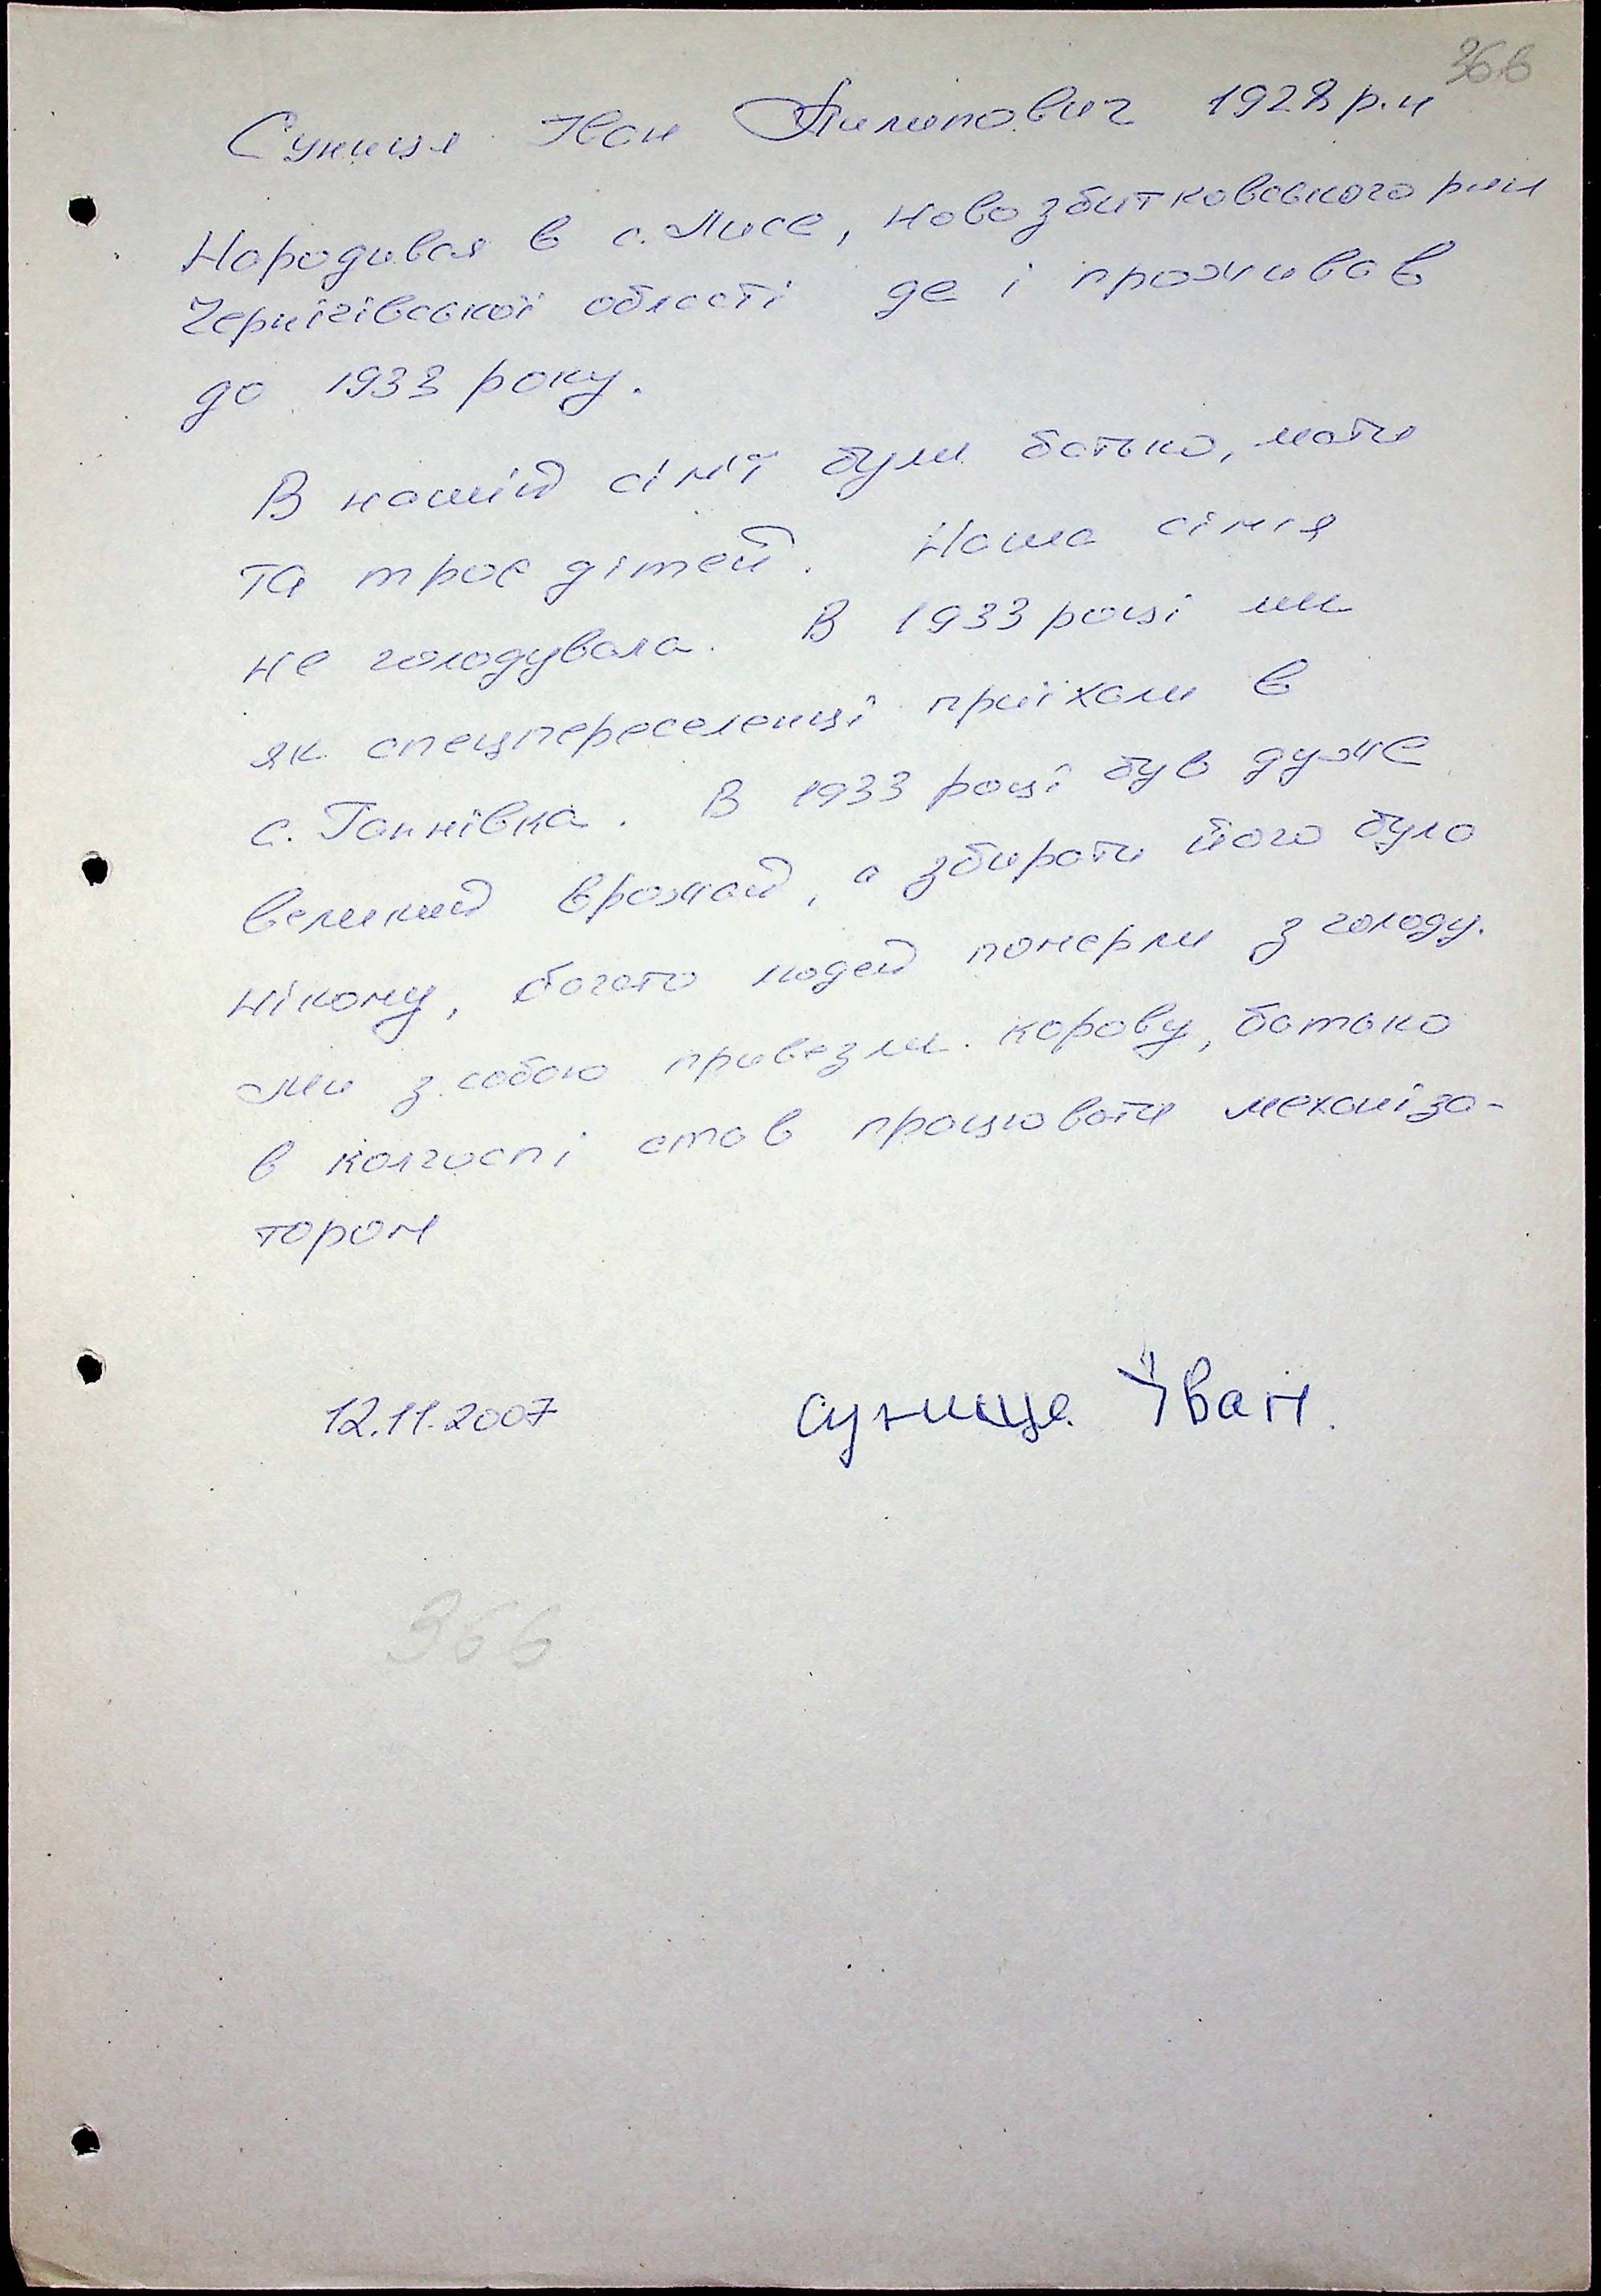 366
Суниця Іван Пилипович 1928 р.н
Народився в с. Лисе, Новозбитковського р-ну
Чернігівської області де і проживав
до 1933 року.
В нашій сім'ї були батько, мати
та троє дітей. Наша сімія
не голодувала. В 1933 році ми
як спецпереселенці приїхали в
с. Ганнівка. В 1933 році був дуже
великий врожай, а збирати його було
нікому, багато людей померли з голоду.
Ми з собою привезли корову, батько
в колгоспі став працювати механіза-
тором
12.11.2007 Суниця Іван.
366